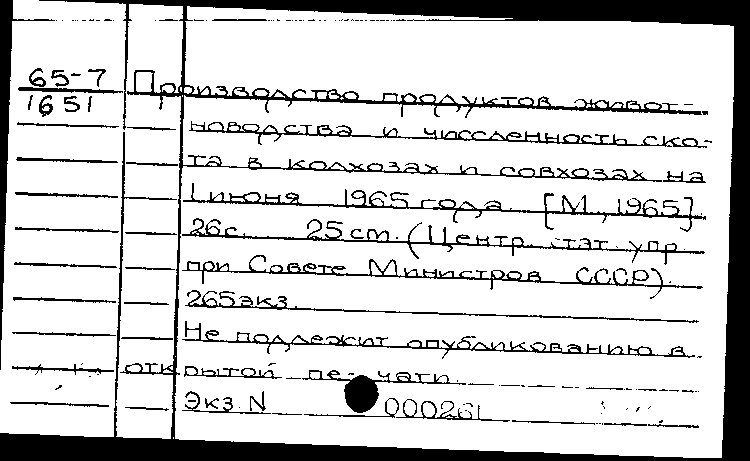 65-7 Производство продуктов живот-
1651
новодства и численность ско-
та в колхозах и совхозах на
1 июня 1965 года. [М., 1965]
26с. 25 cm. (Центр. стат. упр.
при Совете Министров СССР).
265 экз.
Не подлежит опубликованию в
открытой печати.
Экз. N 000261